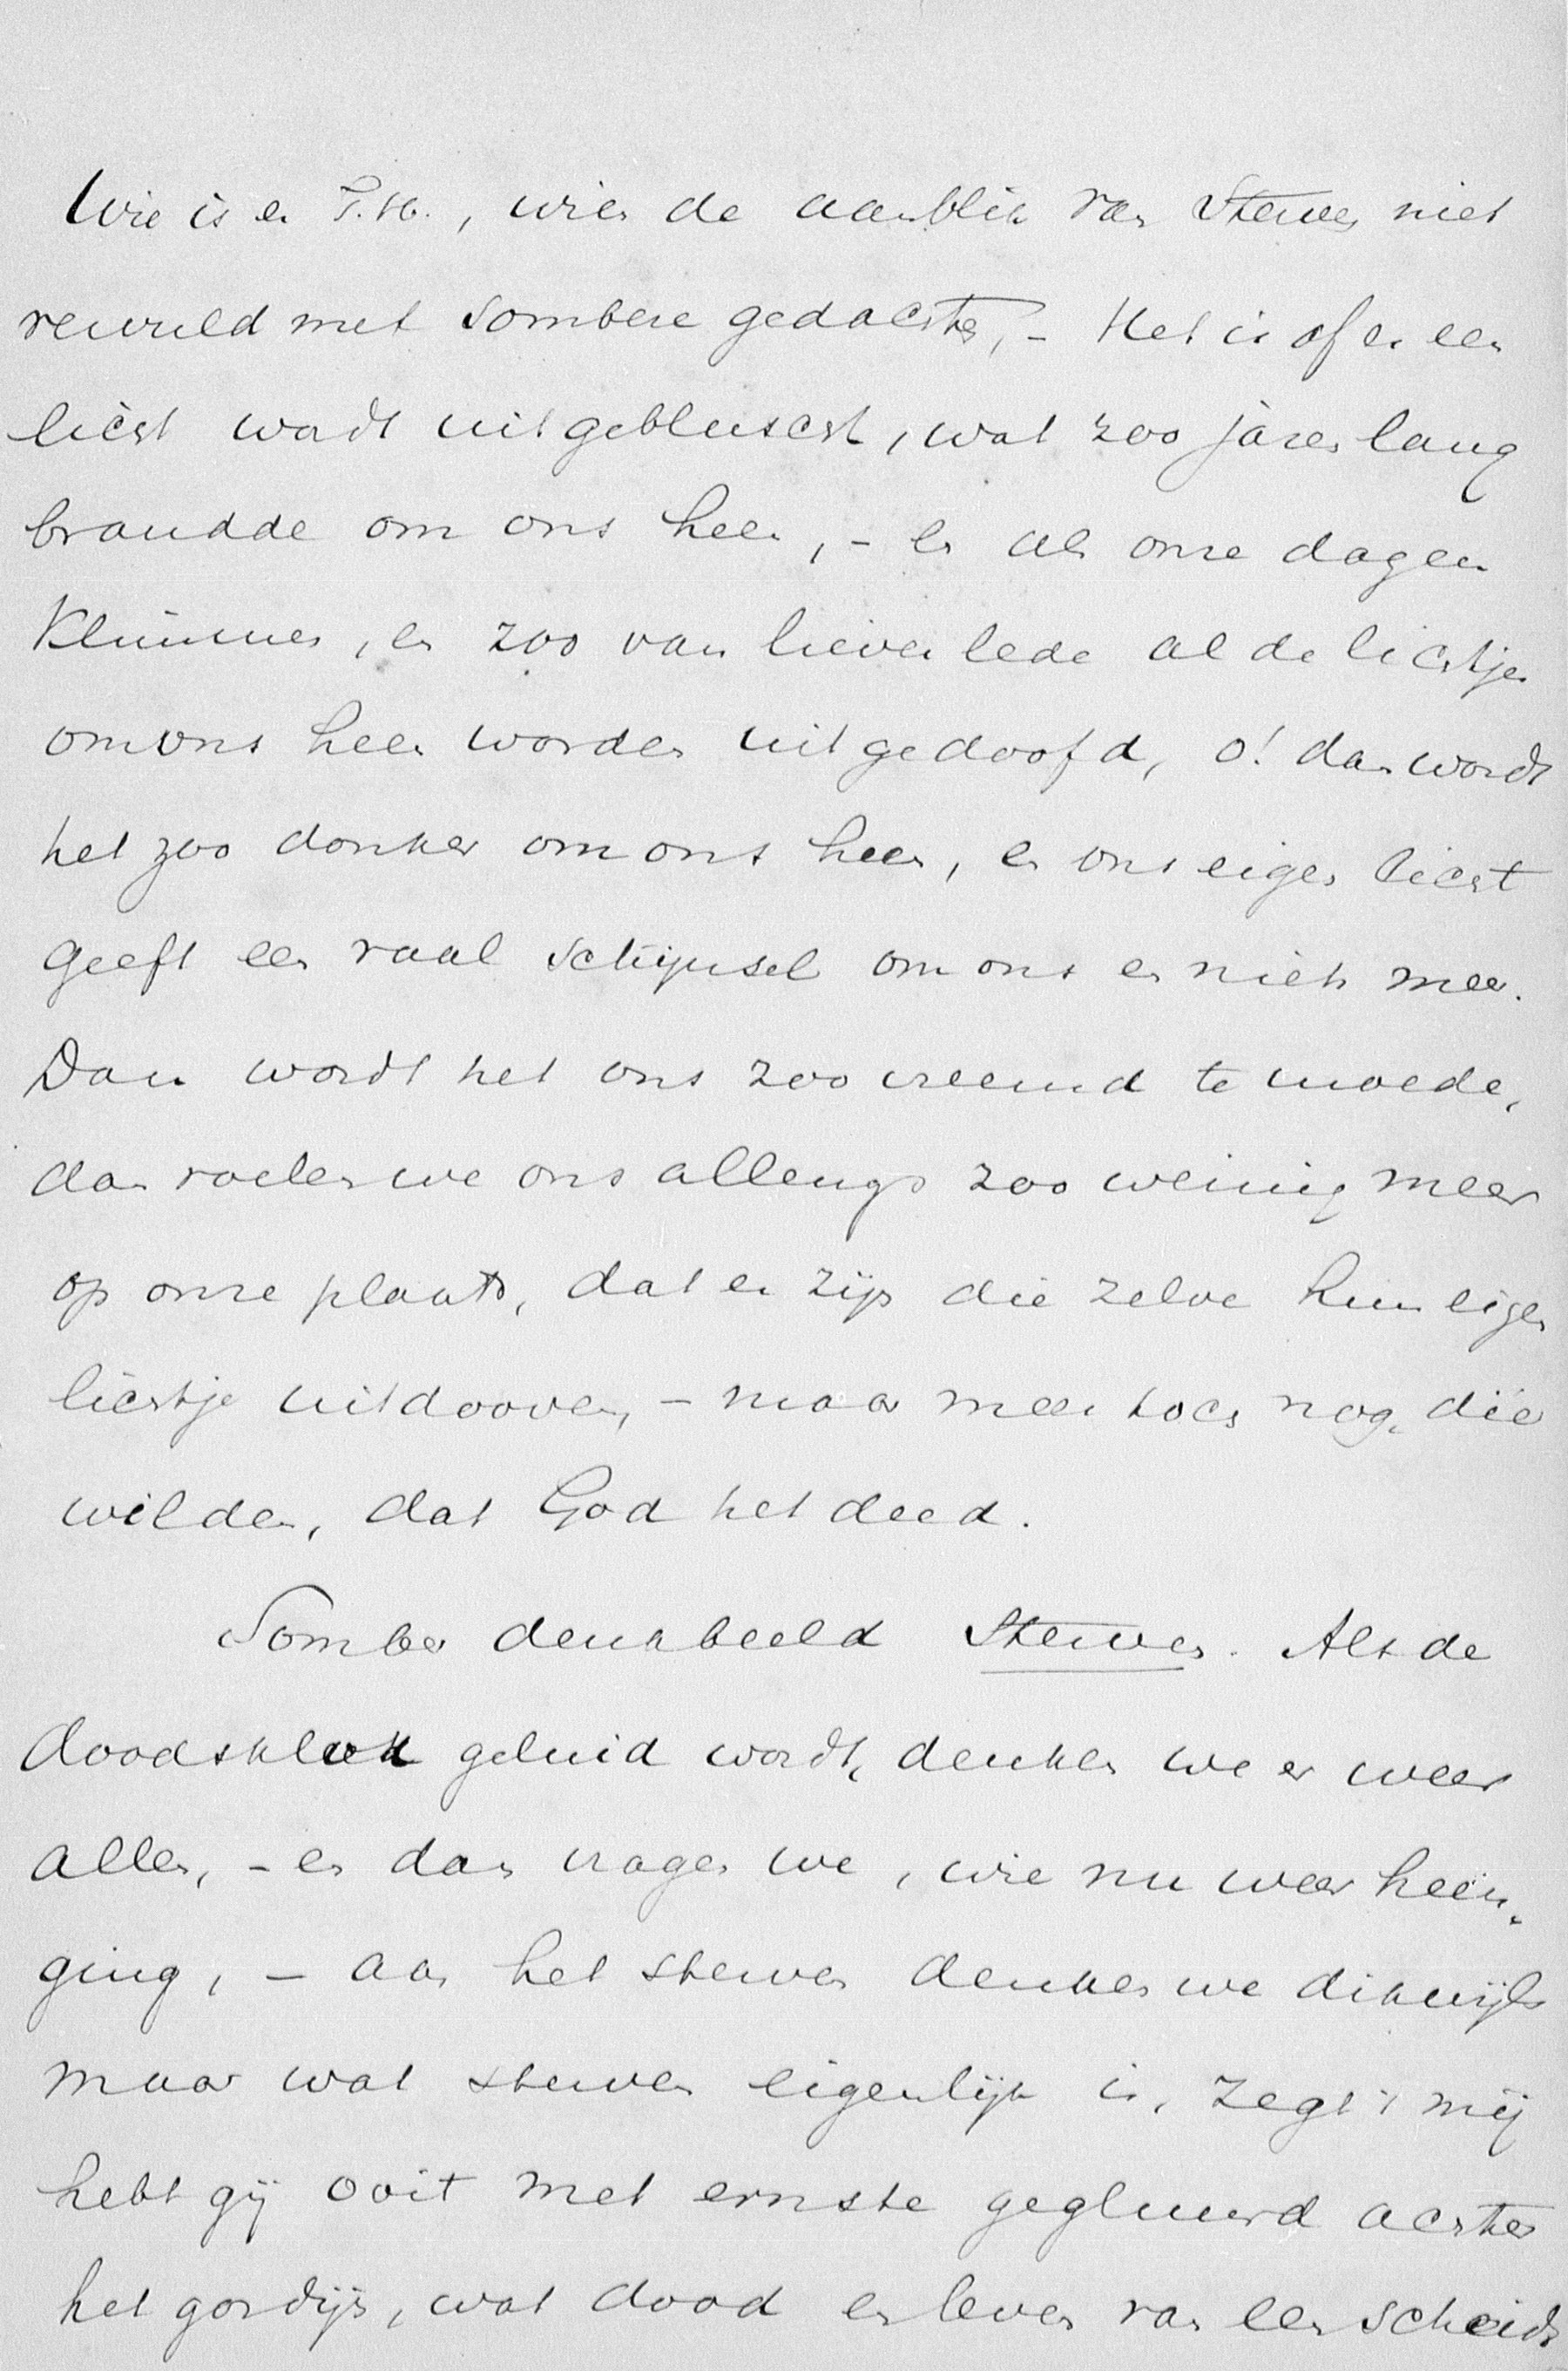 Wie is er T.H., wien de aanblik van Sterven niet
vervuld met sombere gedachten, - Het is of er een
licht wordt uitgebluscht, wat zoo jaren lang
brandde om ons heen, - En als onze dagen
klimmen, en zoo van lieverlede al de lichtjes
om ons heen worden uitgedoofd, o! dan wordt
het zoo donker om ons heen, en ons eigen licht
geeft een vaal schijnsel om ons en niets meer.
Dan wordt het ons zoo vreemd te moede,
dan voelen we ons allengs zoo weinig meer
op onze plaats, dat er zijn die zelve hun eigen
lichtje uitdooven, - maar meer toch nog, die
wilden, dat God het deed.
Somber denkbeeld Sterven. Als de
doodsklok geluid wordt, denken we er weer
allen, - en dan vragen we, wie nu weer heen-
ging, - aan het sterven denken we dikwijls
maar wat sterven eigenlijk is, zegt 't mij
hebt gij ooit met ernste gegluurd achter
het gordijn, wat dood en leven van een scheidt